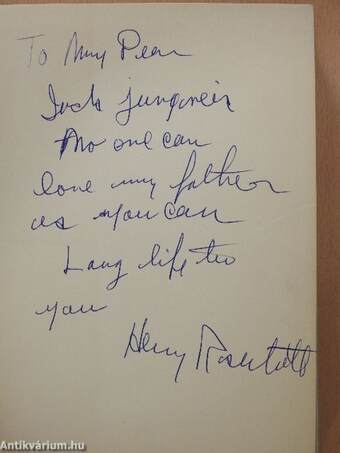 To My Dear
No one can
love my father
as you can
Long life too
you
Henry
Antikvárium.hu